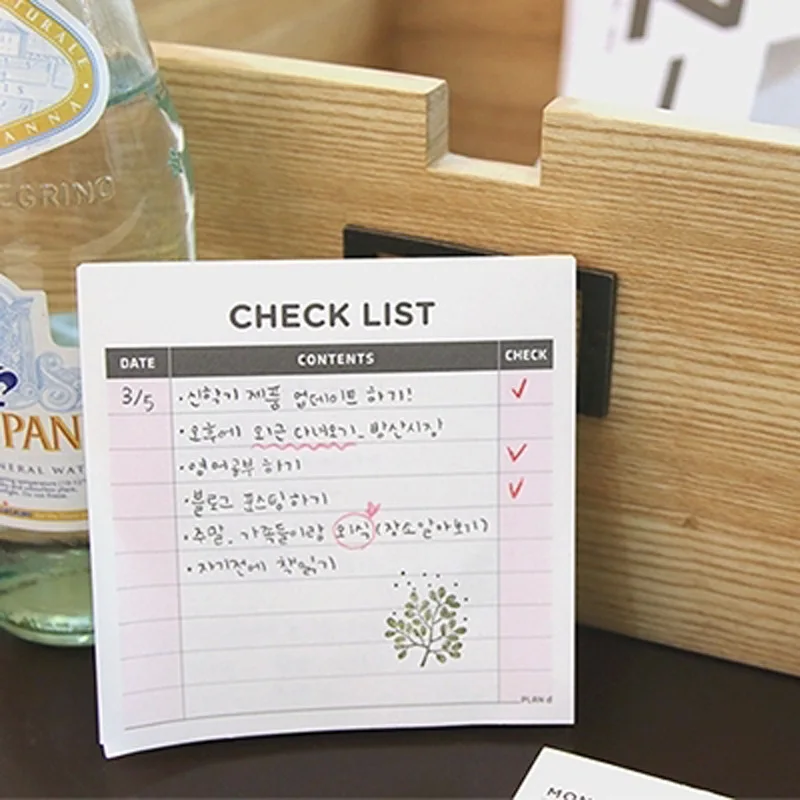 TURALE
ANNA
EGRINO
PAN
NERAL WAT
CHECK LIST
DATE CONTENTS CHECK
3/5 ·신학기 제품 업데이트 하기! ✓
·오후에 외근 다녀오기_방산시장
·영어공부 하기 ✓
·블로그 포스팅하기 ✓
·주말, 가족들이랑 외식 (장소알아보기)
·자기전에 책읽기
PLAN d
MON